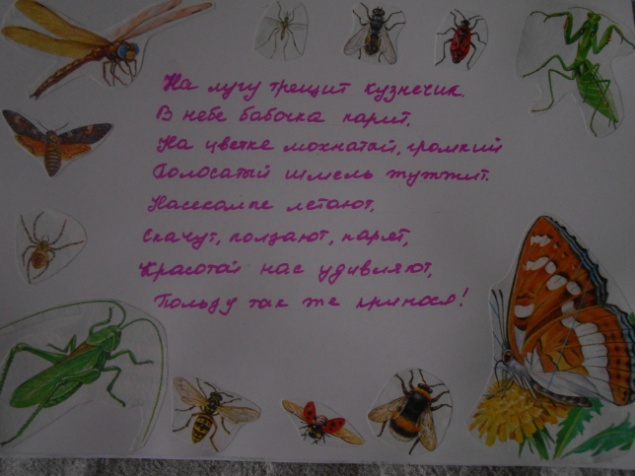 На лугу трещит кузнечик.
В небе бабочка парит,
На цветке мохнатый, громкий
Полосатый шмель жужжит.
Насекомые летают,
Скачут, ползают, парят,
Красотой нас удивляют,
Пользу так же принося!